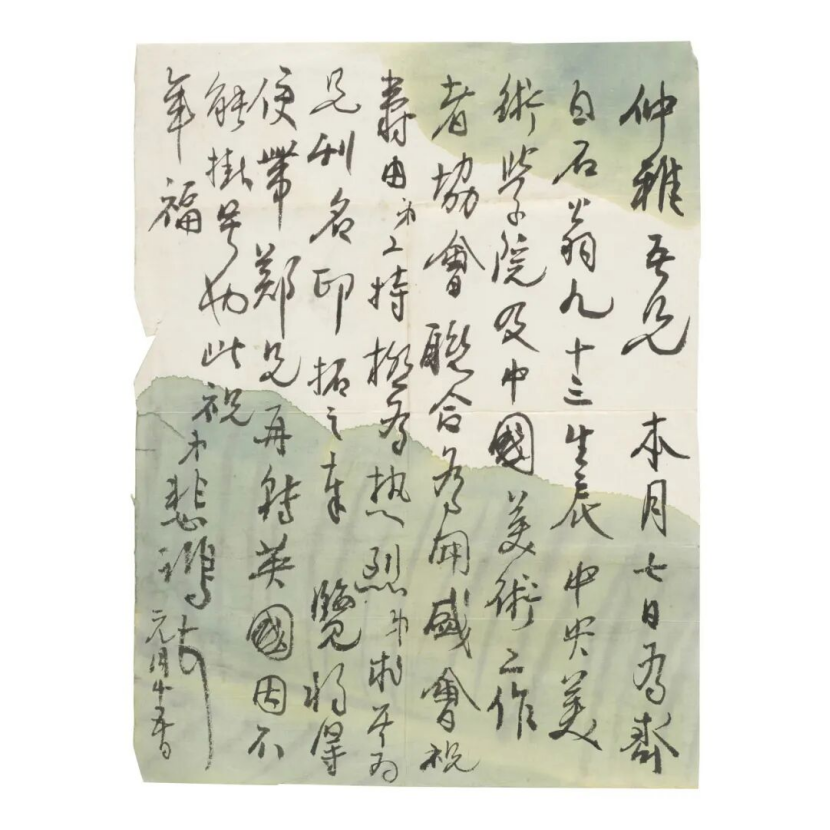 仲雅吾兄 本月七日為齊
白石翁九十三生辰 中央美
術學院及中國美術工作
者協會聯合為開盛會祝
壽由弟主持極為熱烈弟求其為
兄刊名印拓之奉 覽将得
便帶鄭兄再轉英國因不
能掛號也此祝
年福
弟悲鴻
元月十五日